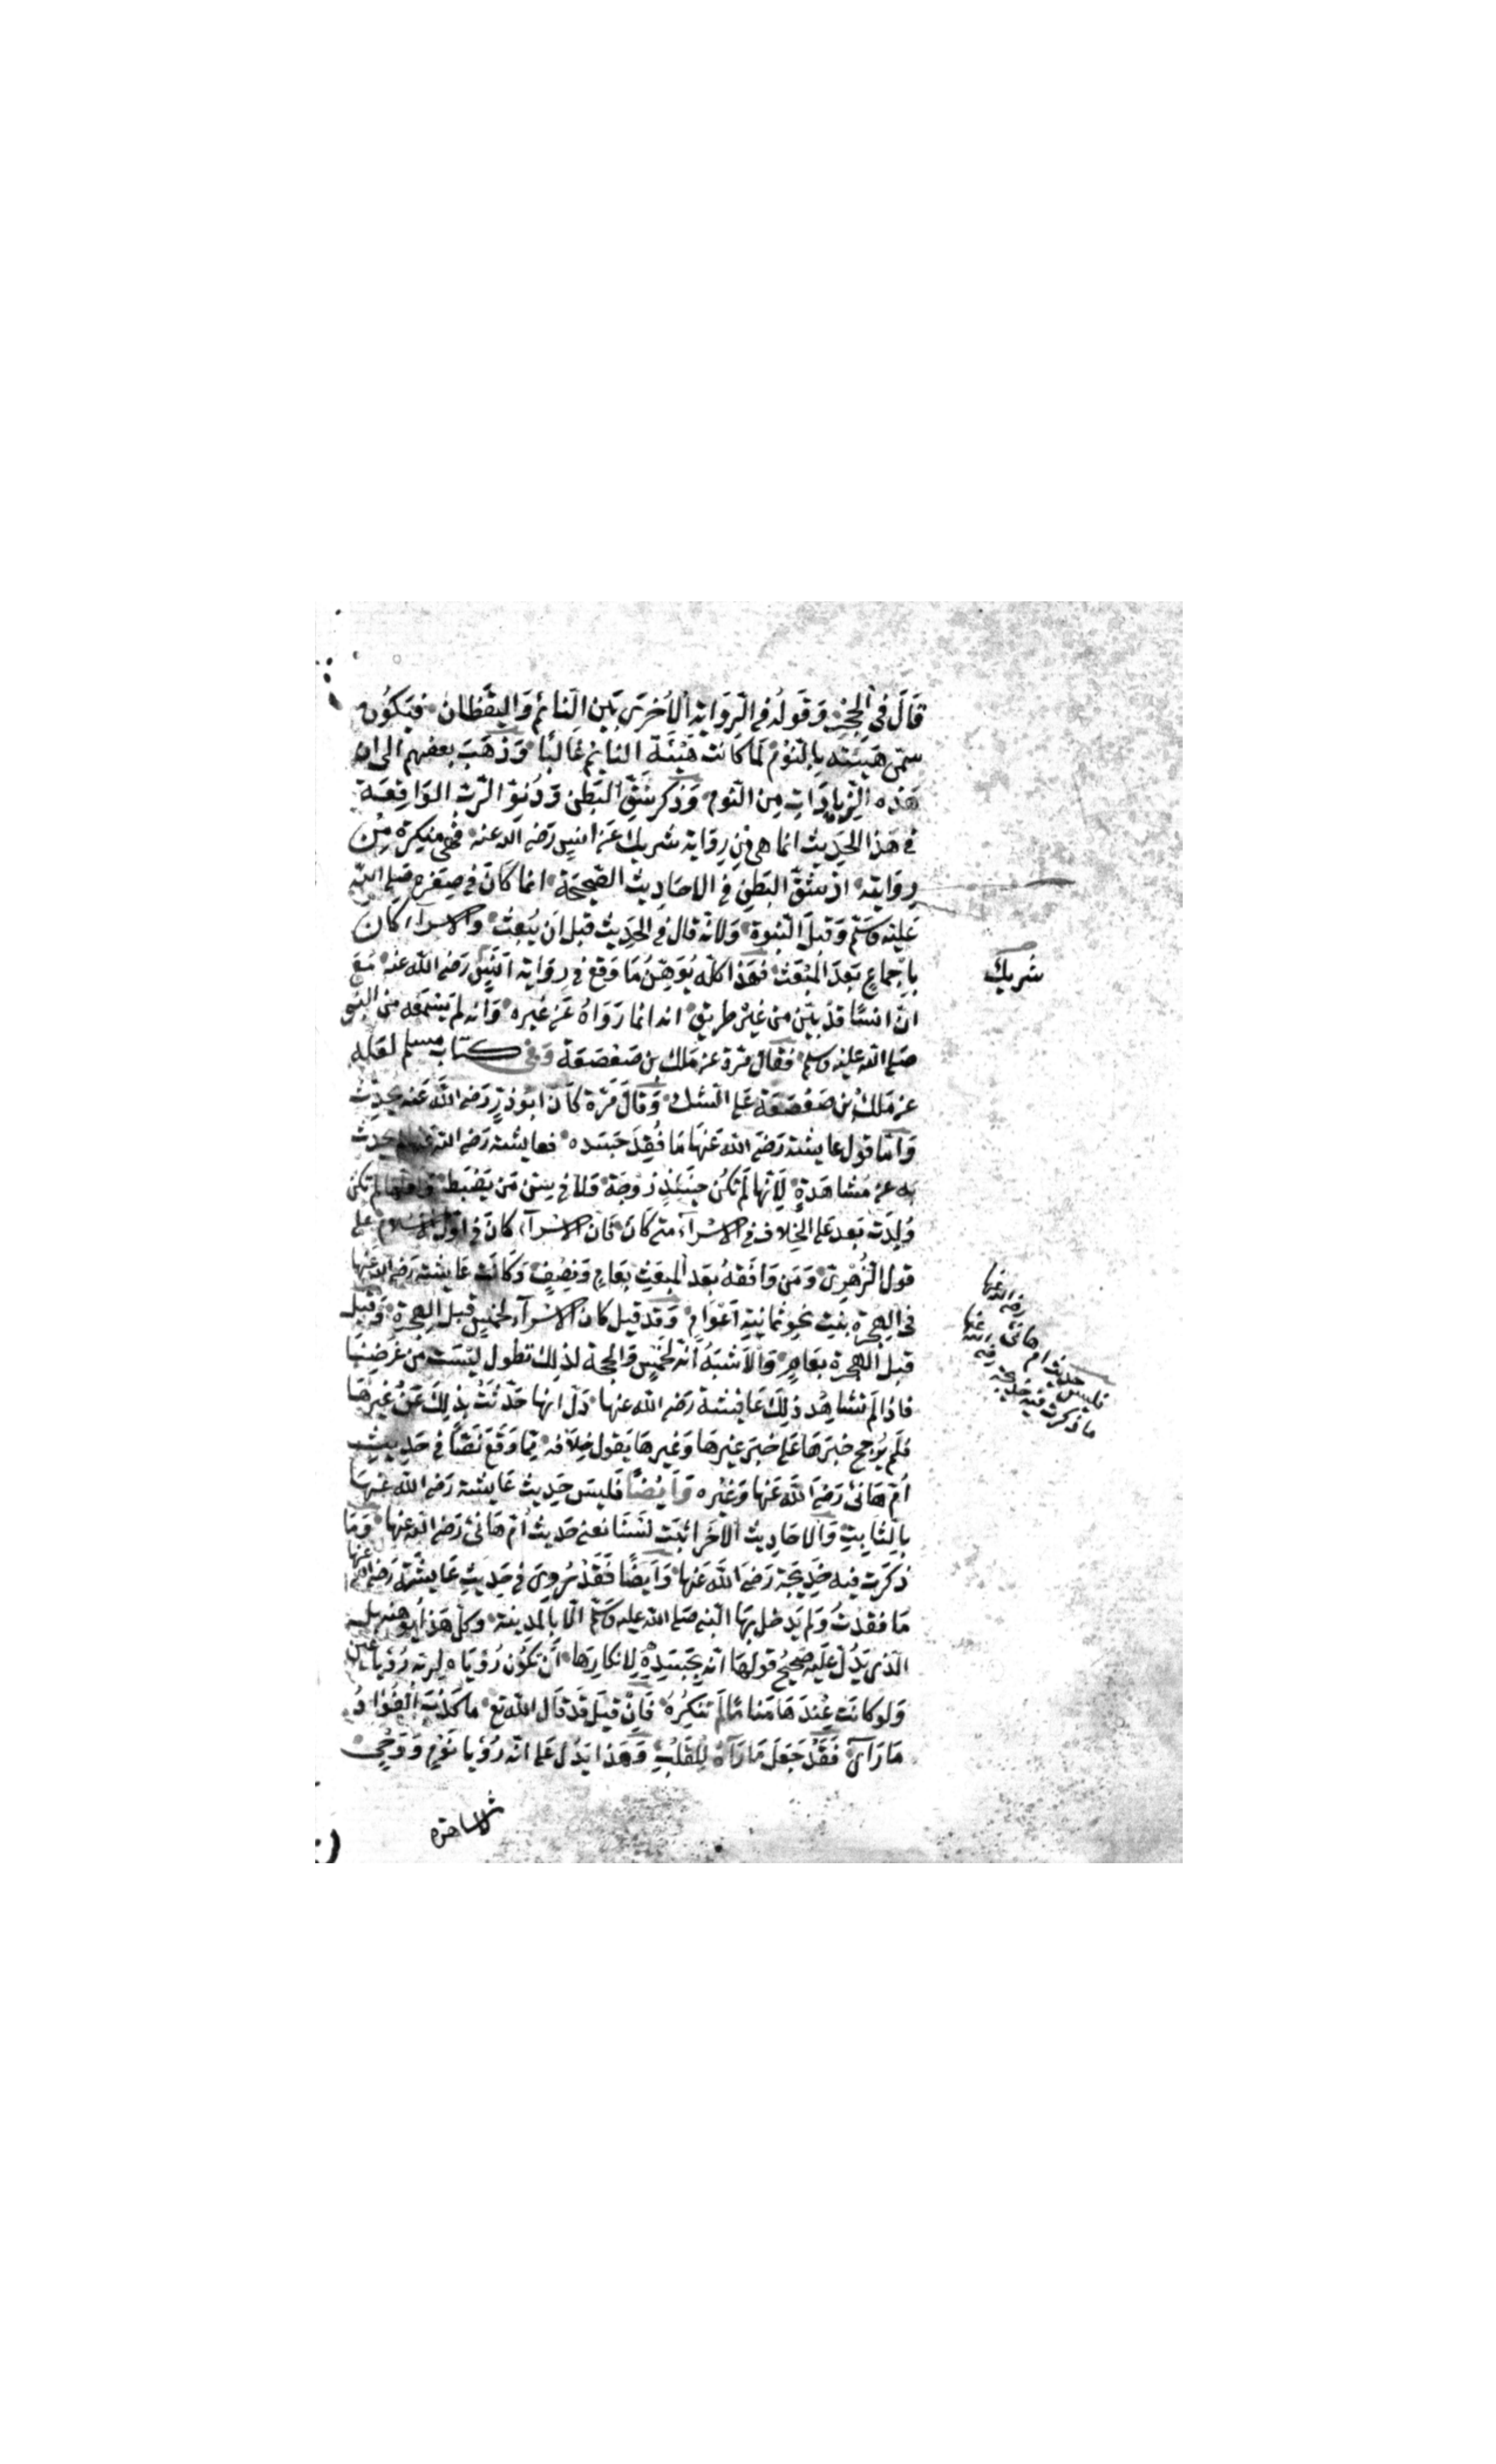 قَالَ فِي الحِجْرِ وَقَولُه في الرّوَاية الأُخرَى بَين النائم وَاليَقَظان فيَكُون
سَمّى هَيئته بِالنّوْمِ لَما كانَت هَيْئَة النايم غَالبًا وَذهَبَ بعضهم الى ان
هَذه الزِّيادَاتِ مِن النّوم وَذكرشَقّ البَطن وَدُنوّ الرّب الوَاقِعَة
في هَذا الحَدِيث انما هي مِن رِوَاية شريك عَن انسٍ رَضي الله عنه فهي منكرَة مِن
رِوَايته اذ شَقّ البَطنِ في الاحَادِيث الصّحيحَة انما كانَ في صِغَره صَلى الله
عَليْه وسَلم وَقبلَ النّبوة وَلانّه قال في الحَدِيث قبل اَن يُبعَث والاسرآء كان
باِجماعٍ بَعدَ المبْعَث فهَذا كلّه يُوَهِّنُ مَا وَقعَ في رِوَاية اَنَسٍ رَضي الله عنه مَعَ
انّ انسًا قدْ بَيّن مِن غَيْر طريقٍ انه انما رَوَاهُ عَن غَيره وَانه لم يَسْمَعه من النبي
صَلى الله عليه وسلم فقال مَرّة عَن مٰلك بن صَعْصَعَة وَفي كتاب مسلم لعَله
عَن مٰلك بن صَعْصَعَة عَلى الشك وَقالَ مَرّة كانَ ابُوذرٍ رَضي الله عَنه يحدِّث
وَامّا قول عايشة رَضيَ الله عَنهَا مَا فُقِدَ جَسَده فعايشة رَضي الله عَنها لم تحدث
به عَن مُشاهَدةٍ لِأنّها لم تكُن حِينَئذٍ زَوْجَة وَلا في سِنّ مَن يَضْبط وَلعَلها لم تكن
وُلِدَت بَعد عَلى الخِلاف في الاسْرآء مَتى كانَ فَان الاسْرآء كانَ في اوّل الاسْلام على
قول الزُهْرِيّ وَمَن وَافقهُ بَعدَ المبعَثِ بَعامٍ وَنِصْفٍ وَكانَت عَايشة رَضي الله عَنها
في الهِجرَة بنتَ نحو ثمانيَةِ اَعوَامٍ وَقد قيل كان الاسْرآء لخمسٍ قبل الهِجرَة وَقيل
قبل الهجرة بعَامٍ وَالاَشبَهُ اَنه لخمسٍ وَالحجة لذلك تطول ليْسَت مِن غَرَضِنَا
فاذا لَم تشاهِد ذلك عَايشة رَضي الله عنها دَلّ انها حَدّثتْ بذلِكَ عَن غيرهَا
فلم يُرَجح خبَرهَا عَلى خبَر غيرهَا وَغيرهَا يَقول خِلاَفه ممّا وَقعَ نَصًّا في حَديث
اُمّ هَانئ رَضيَ الله عَنها وَغيْره وَاَيْضًا فَليسَ حَدِيث عَايشة رَضيَ الله عَنهَا
بالثّابتِ وَالاحَادِيث الاُخَر اثبَت لسْنَا نعني حَديث اُمّ هَانئ رَضي الله عنها وَمَا
ذكرَت فيه خَدِيجة رَضيَ الله عَنها وَاَيضًا فَقَدْ رُوِىَ في حَدِيث عَايشَة رَضي الله عنها
مَا فقدتُ وَلم يَدخل بهَا النّبي صَلى الله عليه وَسَلم الا بالمَدينة وكلّ هَذا يوهنه بل
الّذي يَدُلّ عَليْه صَحِيحُ قولهَا انّه بجَسَدِه لِانكارهَا اَن تكون رُؤيَاه لربّه رُؤيا عَين
وَلو كانَت عِندَهَا مَنامًا لَم تنكِرْهُ فَاِنْ قيلَ قد قال الله تع مَا كذَبَ الفؤَادُ
مَا رَاىٰ فَقَدْ جَعَلَ مَا رَآهُ لِلقَلْبِ وَهَذا يَدُل عَلى انّه رُؤيا نَوْمٍ وَوَحْيٍ
شريك
رضي الله عنها
فليس حديث ام هانئ رضي الله عنها
ما ذكرت فيه خديجة
لا مشاهدة